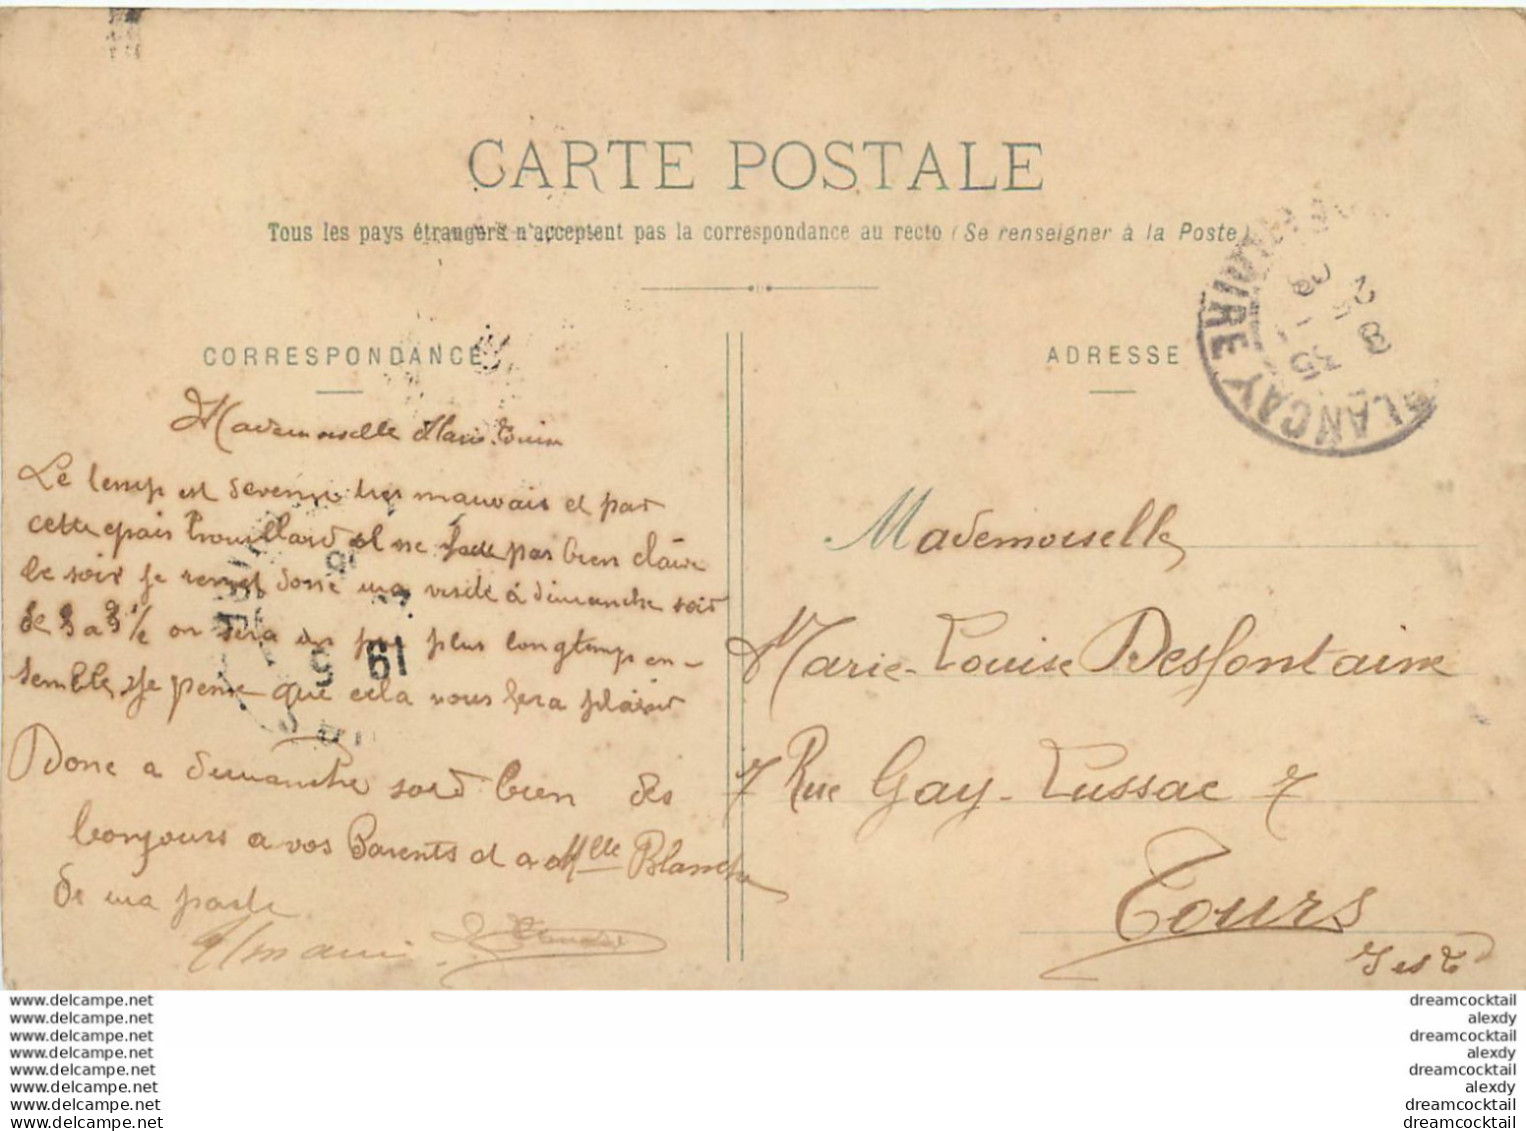 CARTE POSTALE
Tous les pays étrangers n'acceptent pas la correspondance au recto (Se renseigner à la Poste)
CORRESPONDANCE
Mademoiselle Marie-Louise
Le temp est devenu tres mauvais et par
cette epais brouillard il ne fait pas bien claire
le soir je remet donc ma visite à dimanche soir
de 3 a 3 1/2 on sera un peu plus longtemp en-
semble, je pense que cela vous fera plaisir
Donc a dimanche soir bien des
bonjours a vos Parents et a Mlle Blanche
de ma part
ADRESSE
LANCAY
LAIRE
8
35
25
19
5
Mademoiselle
Marie-Louise Desfontaine
7 Rue Gay-Lussac 7
Tours
I et L
www.delcampe.net
www.delcampe.net
www.delcampe.net
www.delcampe.net
www.delcampe.net
www.delcampe.net
www.delcampe.net
www.delcampe.net
dreamcocktail
alexdy
dreamcocktail
alexdy
dreamcocktail
alexdy
dreamcocktail
dreamcocktail